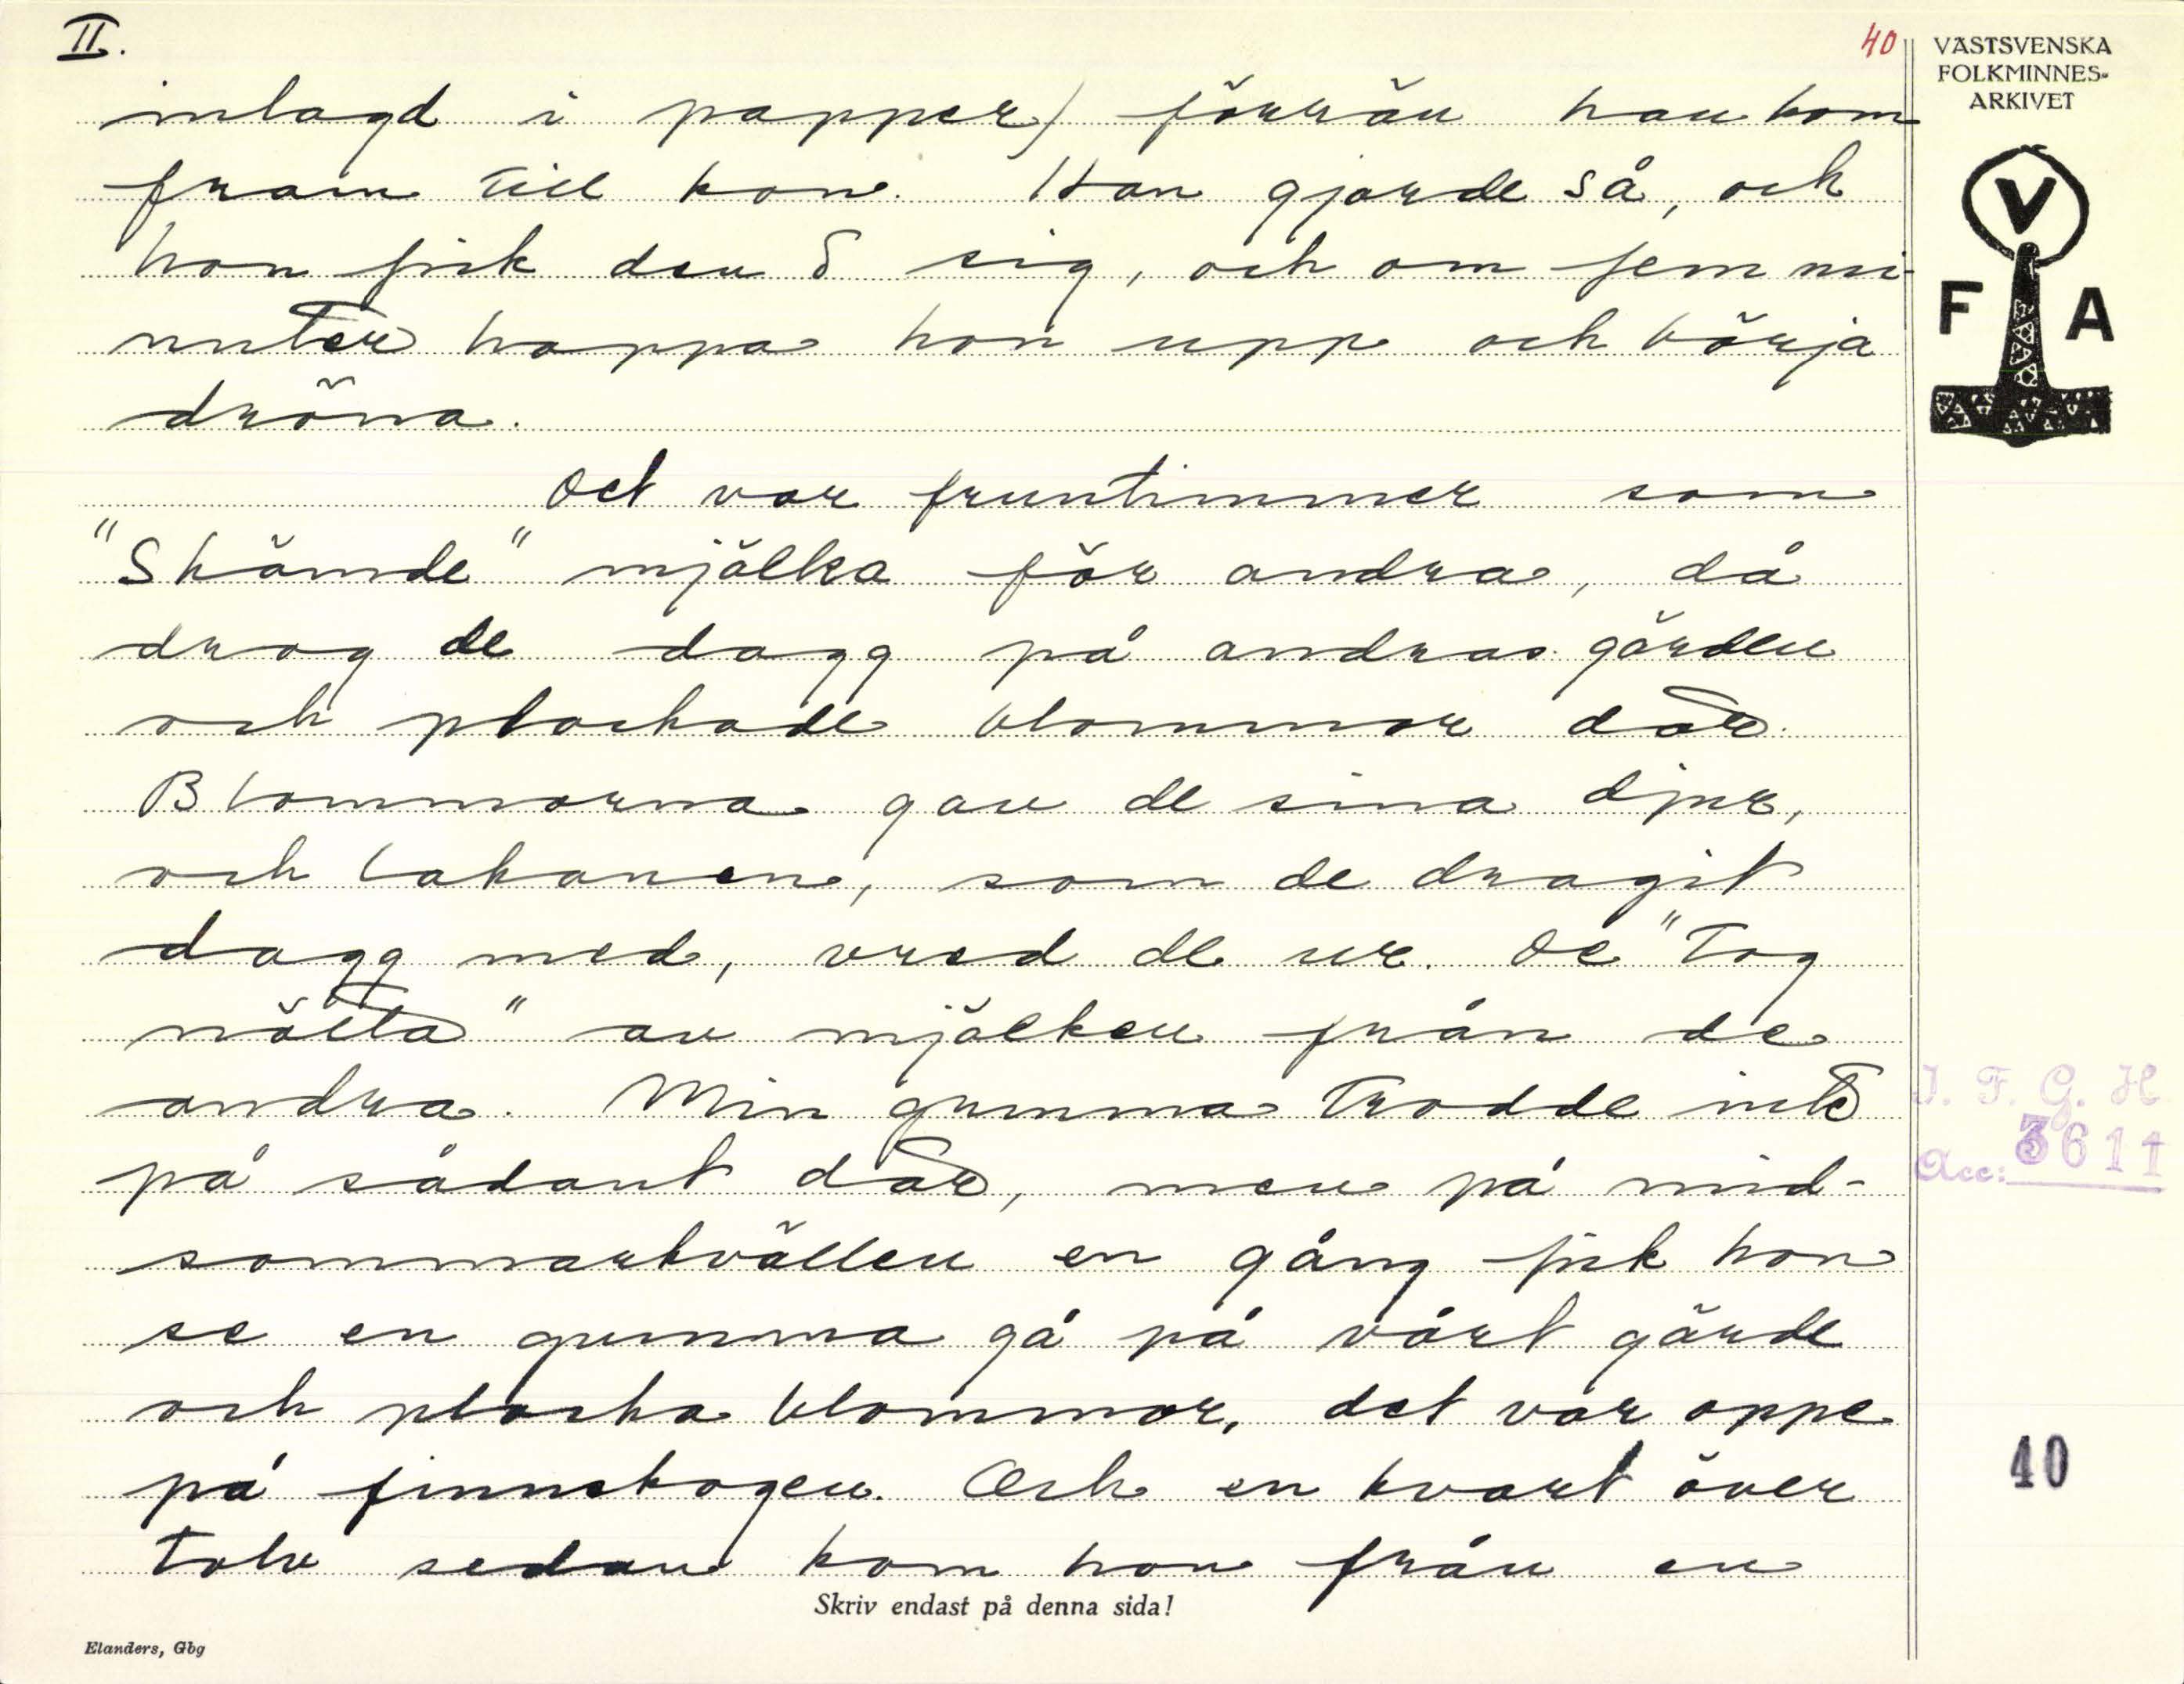 II.
40
VÄSTSVENSKA
FOLKMINNES-
ARKIVET
V
F A
inlagd i papper) förrän han kom
fram till kon. Han gjorde så, och
hon fick den i sig, och om fem mi-
nuter hoppa hon upp och börja
dröna.
Det var fruntimmer som
"Skämde" mjölka för andra, då
drog de dagg på andras gärden
och plockade blommor där.
Blommorna gav de sina djur,
och lakanen, som de dragit
dagg med, vred de ur. De "Tog
nötta" av mjölken från de
andra. Min gumma trodde inte
på sådant där, men på mid-
sommarkvällen en gång fick hon
se en gumma gå på vårt gärde
och plocka blommor, det var oppe
på finnskogen. Och en kvart över
tolv sedan kom hon från en
I. F. G. H
Acc: 3611
40
Skriv endast på denna sida!
Elanders, Gbg